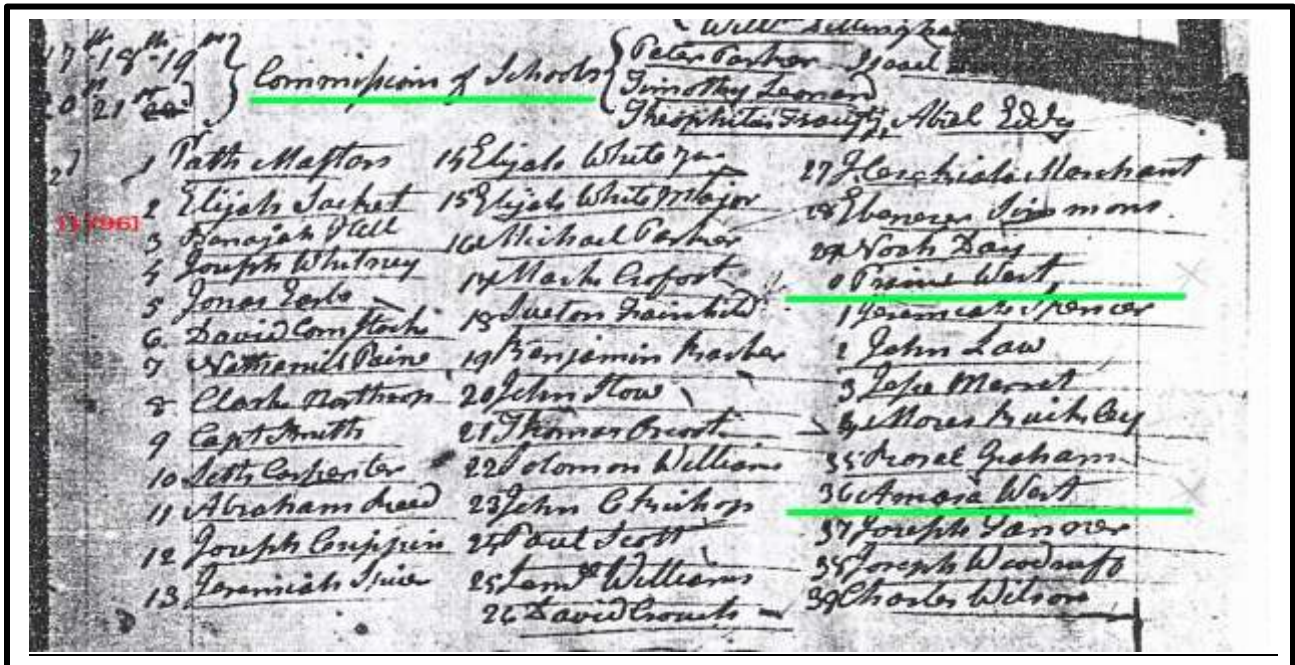 17th 18th 19th
20th 21st
Commissions of Schools
Peter Parker Isaac
Timothy Leonard
Theophilus Abiel Eddy
[1796]
1 Masters
2 Elijah Sacket
3 Benajah Hill
4 Joseph Whitney
5 Jonas Earle
6 David Comstock
7 Nathaniel Paine
8 Clark Northrop
9 Capt Smith
10 Seth Carpenter
11 Abraham Reed
12 Joseph Crippin
13 Jeremiah
14 Elijah White Jun
15 Elijah White Major
16 Michael Parker
17 Mark
18 Fairchild
19 Benjamin Barber
20 John How
21 Thomas
22 Solomon Williams
23 John C Bishop
24 Paul Scott
25 Williams
26 David Crouch
27 Marchant
28 Ebenezer Simmons
29 Noah Day
0 West
1 Jeremiah Spencer
2 John Law
3 Jesse
4 Moses
35 Graham
36 Amasa West
37 Joseph
38 Joseph Woodruff
39 Charles Wilson